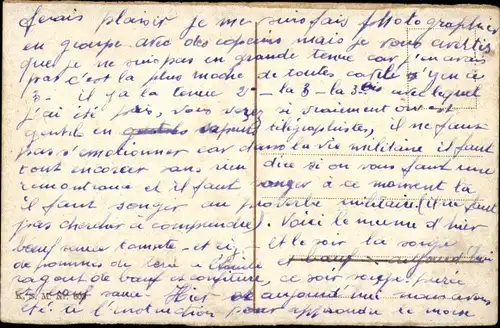 ferais plaisir je me suis fais photographier
en groupe avec des copains mais je vous avertis
que je ne suis pas en grande tenue car j'en avais
pas c'est la plus moche de toutes car il y en a
3 - il y a la tenue 2 - la 3 - la 3 bis avec laquelle
j'ai été pris, vous verez si vraiment on est
gentil en télégraphistes, il ne faut
pas s'émotionner car dans la vie militaire il faut
tout encaisser sans rien dire si on vous faut une
remontrance et il faut songer à ce moment là
il faut songer au proverbe militaire (il ne faut
pas chercher à comprendre). Voici le menu d'hier
bœuf sauce tomate et et le soir la soupe
de pommes de terre à
ragout de bœuf et confiture, ce soir soupe purée
K. F. M. No.
sauce Hier et aujourd'hui nous avons
été à l'instruction pour apprendre le morse